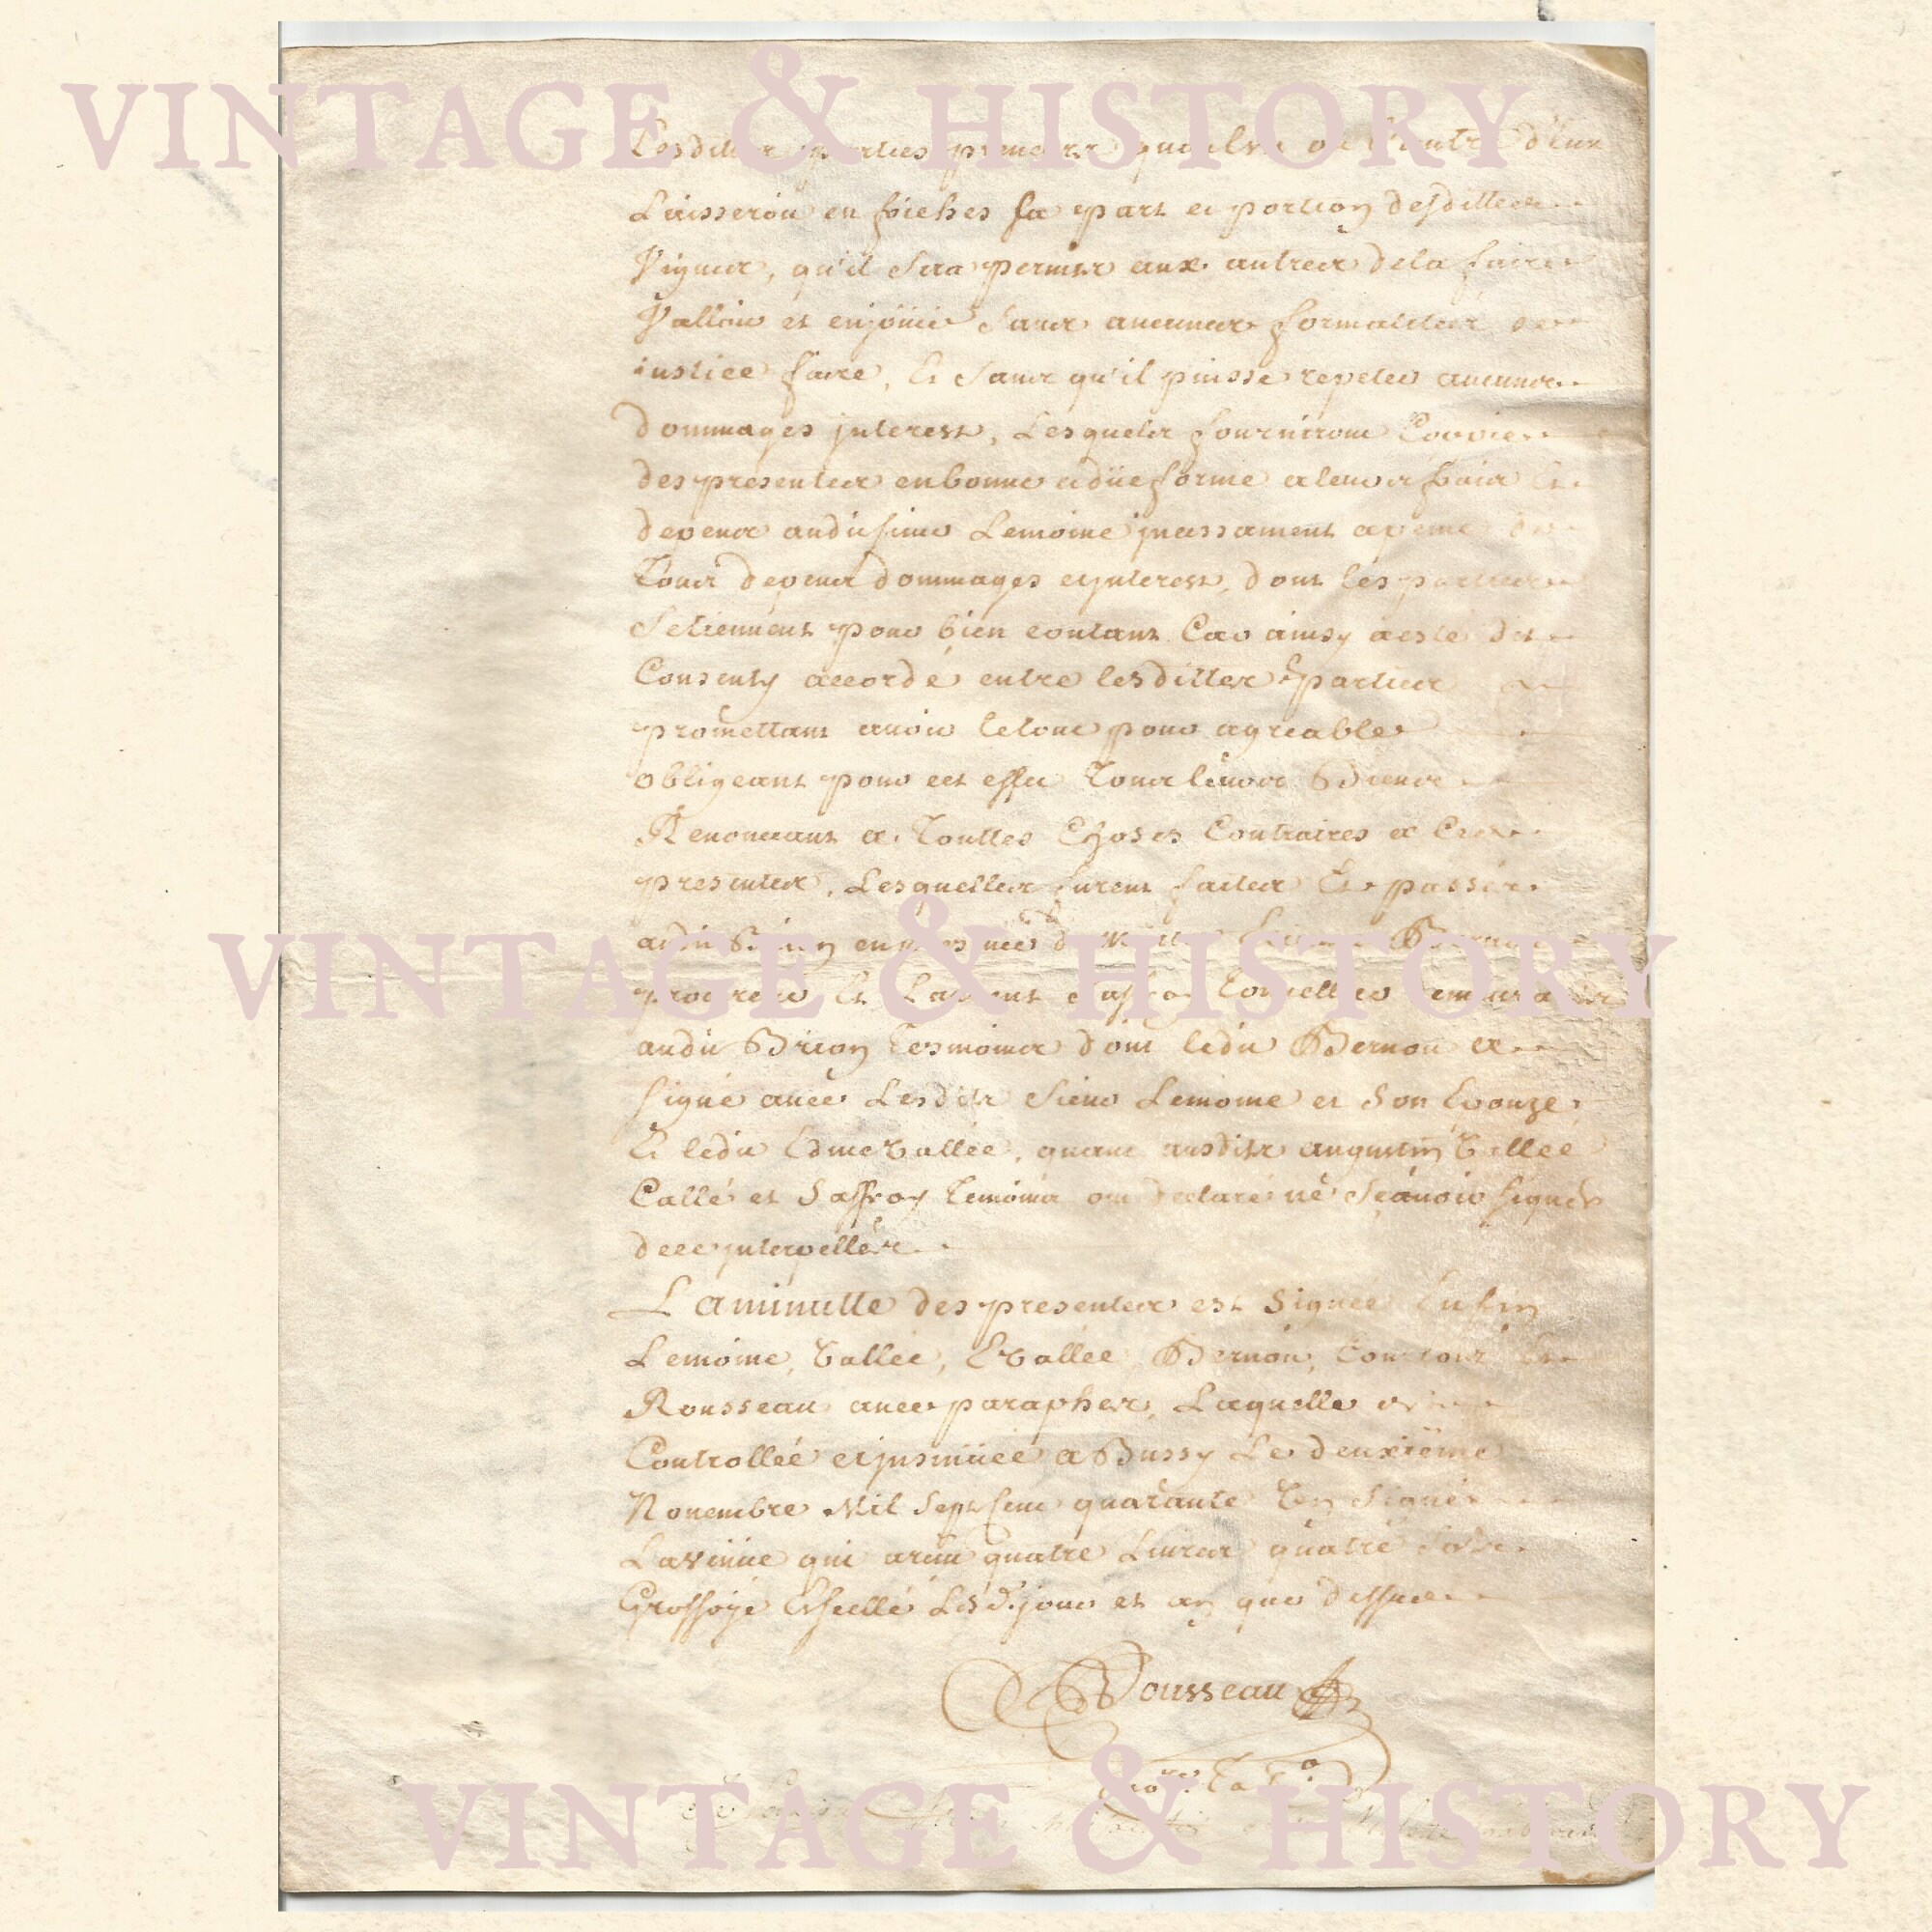 VINTAGE & HISTORY
Lesdittes parties preneurs que l'un ou l'autre d'eux
Laisseroit en friches sa part et portion desdittes
Vignes, qu'il sera permis aux autres de la faire
Valloir et enjoüir sans aucunes formalitez de
justice faire, Et sans qu'il puisse repeter aucuns
dommages jnterest, Lesquels fourniront Coppie
des presentes en bonne et düe forme a leurs frais Et
depens audit sieur Lemoine jncessament a peine de
Tous depens dommages et jnterest, dont les parties
Se tiennent pour bien contans Car ainsy a esté dit
Consenty accordé entre lesdittes parties
promettant avoir le tout pour agreable
obligeant pour cet effet Tous leurs Biens
Renonceant a Touttes Choses Contraires a Ces
presentes, Lesquelles furent faites Et passées
audit Brion en presence de Bernou
VINTAGE & HISTORY
procureur Et Laurent Saffroy Tonnellier demeurants
audit Brion Tesmoins dont ledit Bernou a
signé avec Lesdits Sieur Lemoine et Son Epouze
Et ledit Edme Vallée, quant ausdits augustin Vallée
Callé et Saffroy Temoins ont declaré ne Sçavoir signer
de ce jnterpellés
La minutte des presentes est Signée Enfin
Lemoine, Vallée, E Vallée Bernou, Et
Rousseau avec paraphes, Laquelle est
Controllée et jnsinüée a Bussy Le deuxieme
Novembre Mil Sept Cent quarante Un Signé
Lavenüe qui a reçu quatre Livres quatre Sols
Grossoyé Et scellé Lesd. jour et an que dessus
Rousseau
VINTAGE & HISTORY